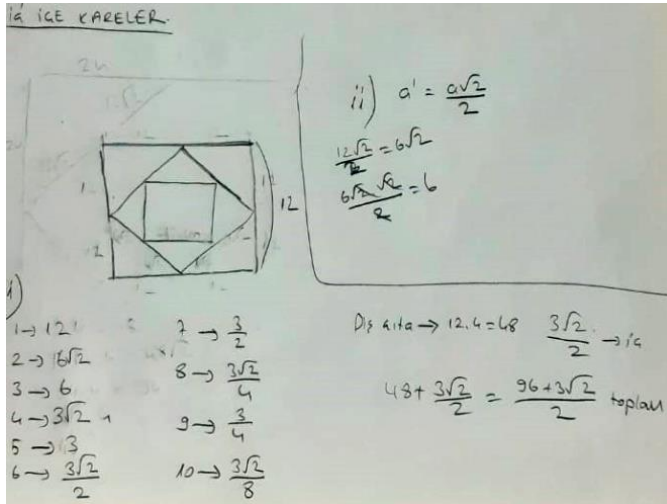 İç İÇE KARELER
24
12
ii) a' = a√2/2
12√2/2 = 6√2
6√2 √2/2 = 6
1)
1→ 12
2→ 6√2
3→ 6
4→ 3√2
5→ 3
6→ 3√2/2
7→ 3/2
8→ 3√2/4
9→ 3/4
10→ 3√2/8
Dış → 12.4=48 3√2/2 → iç
48+ 3√2/2 = 96+3√2/2 toplam